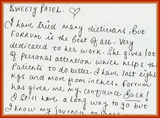 SWEETY PATEL.
I have tried many dieticians. But
Forrum is the best of all. Very
dedicated to her work. She gives lots
of personal attention which helps the
Patients to do better. I have lost eight
kgs and more from inches. Forrum
has given me my confidence back!
I still have a long way to go but
I know my journey to